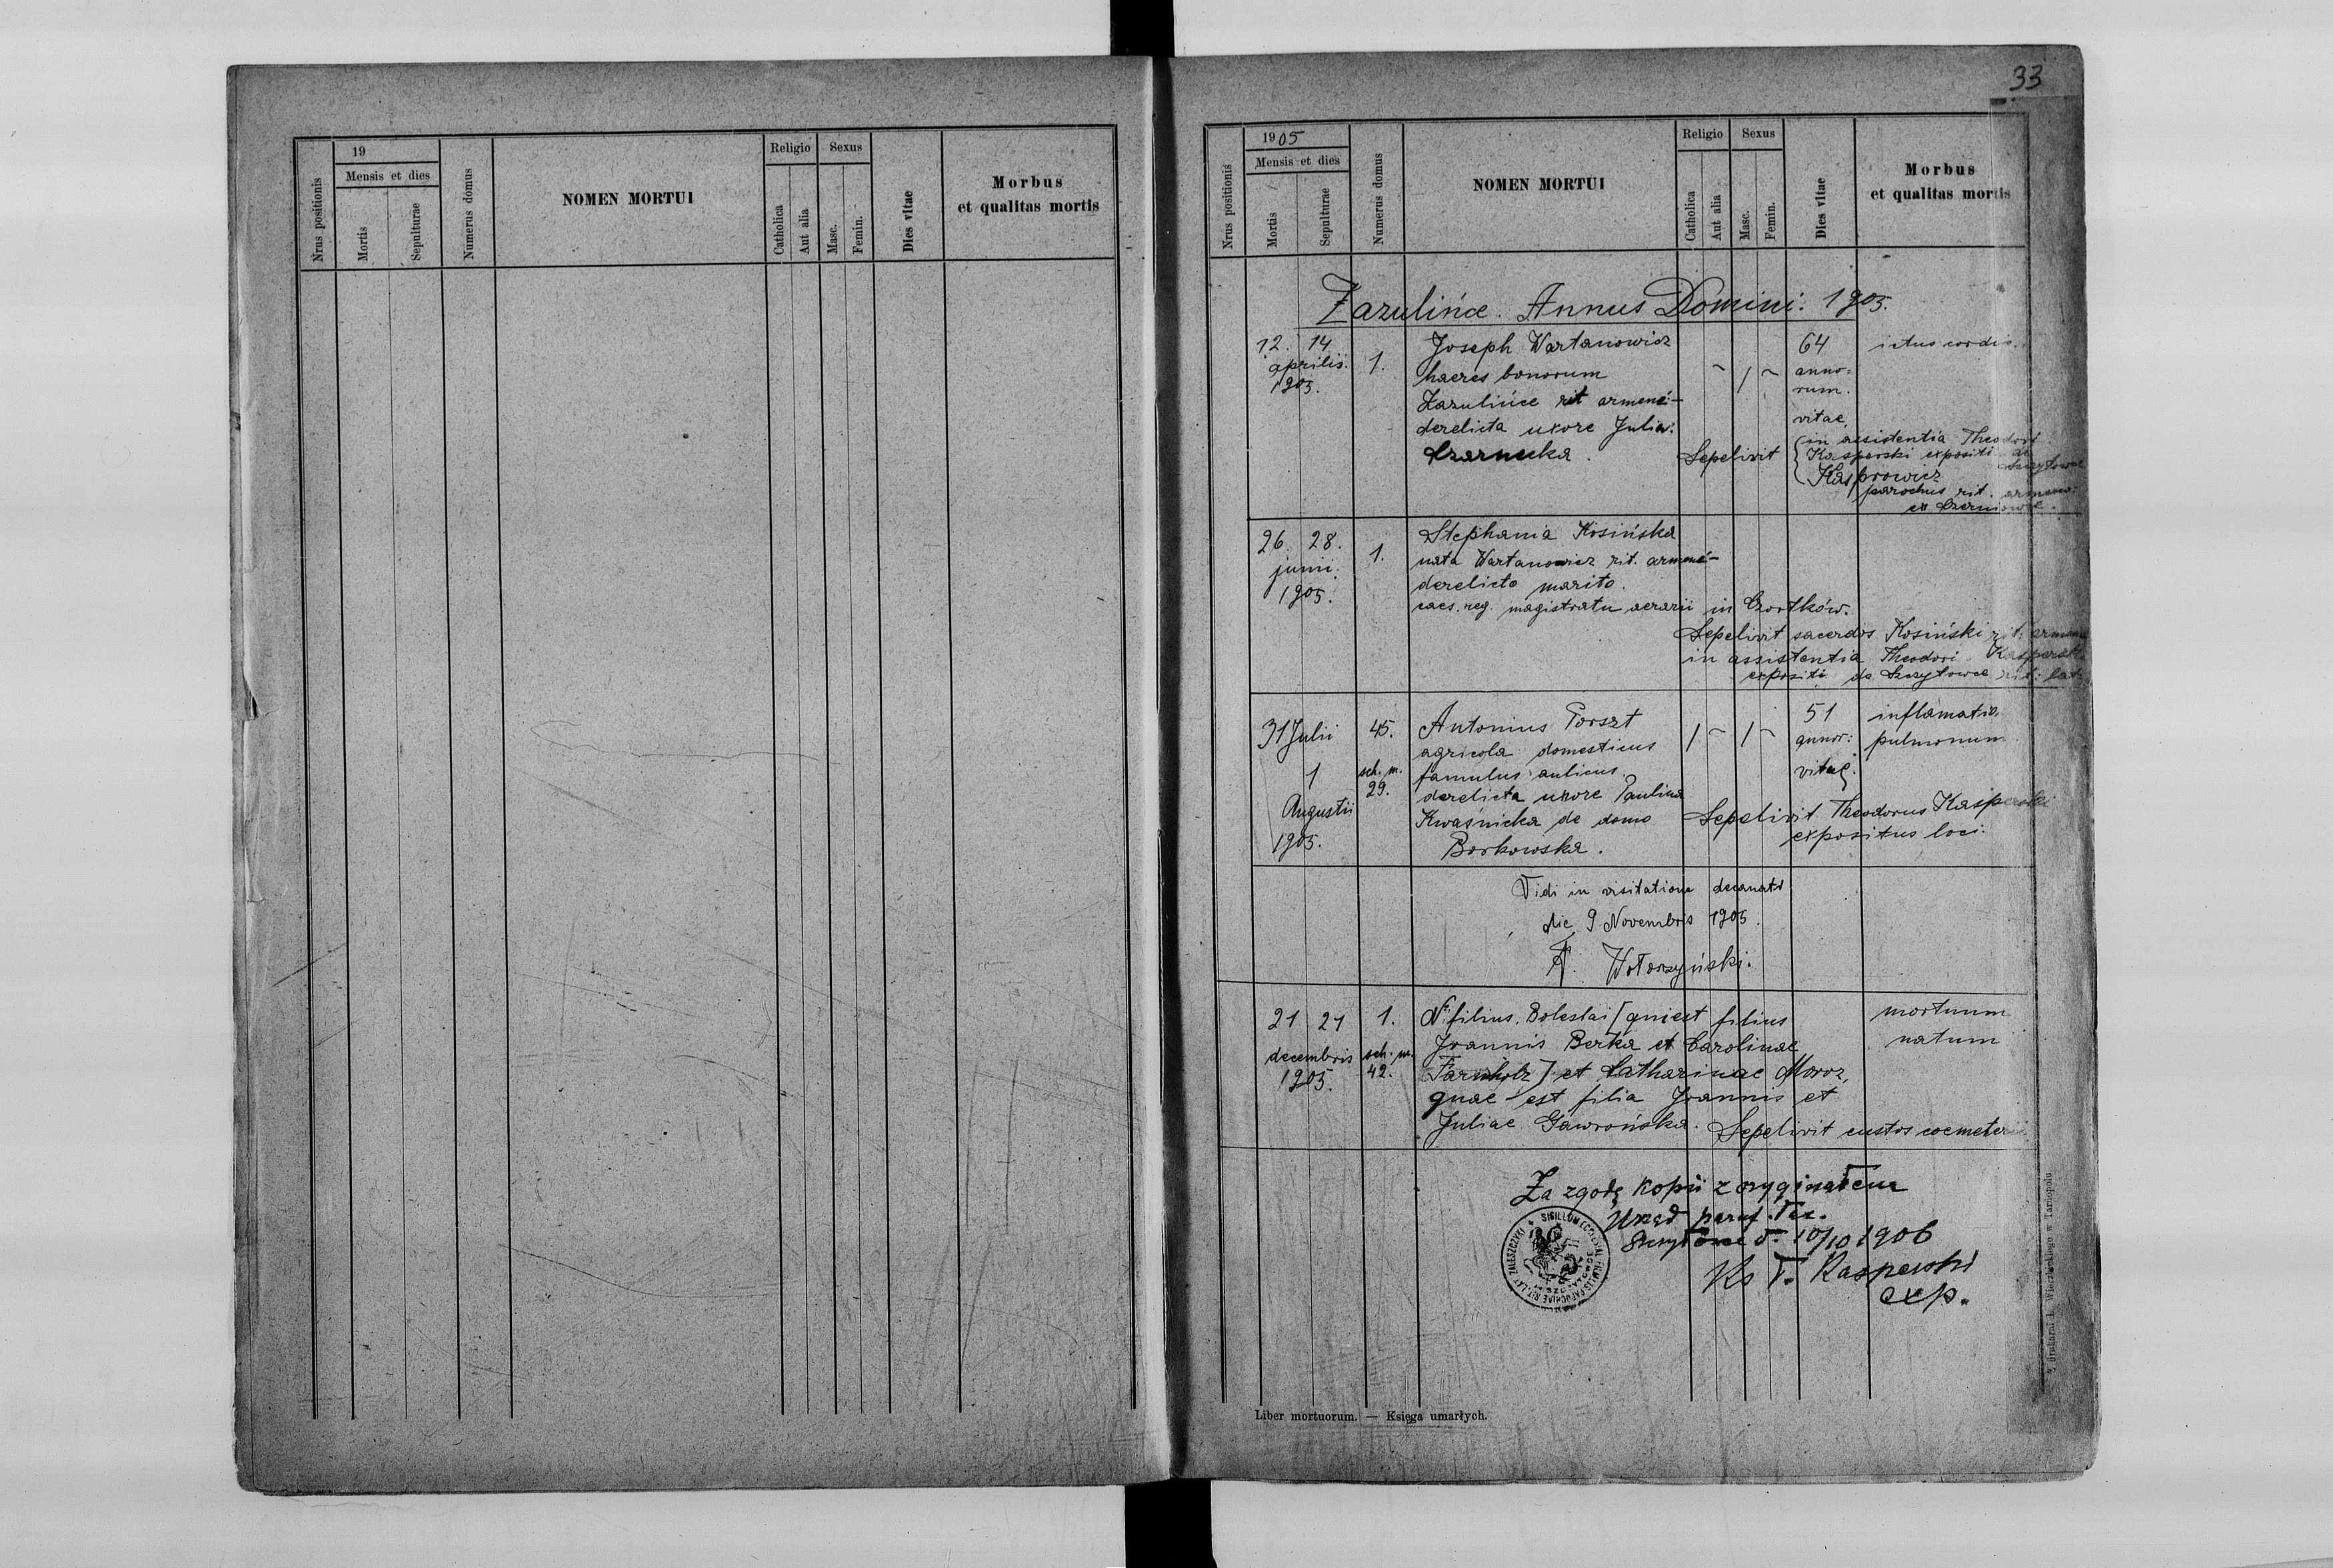 19
Mensis et dies
Nrus positionis
Mortis
Sepulturae
Numerus domus
NOMEN MORTUI
Religio
Sexus
Catholica
Aut alia
Masc.
Femin.
Dies vitae
Morbus
et qualitas mortis
33
1905
Mensis et dies
Nrus positionis
Mortis
Sepulturae
Numerus domus
NOMEN MORTUI
Religio
Sexus
Catholica
Aut alia
Masc.
Femin.
Dies vitae
Morbus
et qualitas mortis
Zazulińce. Annus Domini. 1905.
12. 14
aprilis.
1905.
1.
Joseph Wartanowicz
haeres bonorum
Zazulińce rit armené-
derelicta uxore Julia:
Czarnecka.
64
anno=
rum.
vitae
ictus cordis.
Sepelivit
in assistentia Theodori
Kasperski expositi de
Szczytowce
Kasprowicz
parochus rit. armen:
ex Czerniowce.
26. 28.
junii.
1905.
1.
Stephania Kosińska
nata Wartanowicz rit. armené-
derelicto marito.
caes. reg. magistratu aerarii in Czortków.
Sepelivit sacerdos Kosiński rit: armené
in assistentia Theodori Kasperski
expositi de Szczytowce rit: lat:
31 Julii
1
Augustii
1905.
45.
sch. m.
29.
Antonius Porszt
agricola domesticus
famulus aulicus.
derelicta uxore Paulina
Kwaśnicka de domo
Borkowska.
51
annor:
vitae.
inflamatio
pulmonum
Sepelivit Theodorus Kasperski
expositus loci.
Vidi in visitatione decanati
die 9 Novembris 1905.
Wołoszyński.
21 21
decembris
1905.
1.
sch. m.
42.
N. filius. Boleslai [qui est filius
Joannis Berka et Carolinae
Farnholz] et Catharinae Moroz,
quae est filia Joannis et
Juliae Gawrońska. Sepelivit custos coemeterii
mortuum
natum
Za zgodę kopii z oryginałem
Urząd paraf. łac.
Szczytowce d. 10/10 1906
Ks T. Kasperski
exp.
Liber mortuorum. — Księga umarłych.
Z drukarni L. Wierzbickiego w Tarnopolu